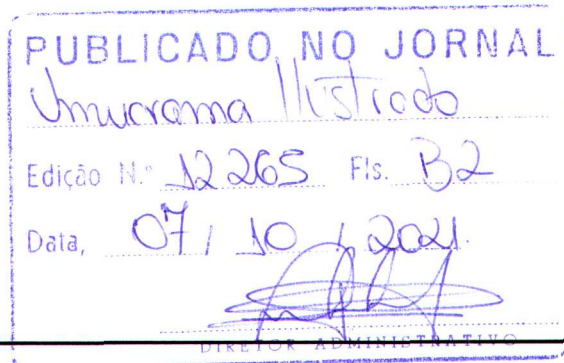 PUBLICADO NO JORNAL
Umuarama Ilustrado
Edição N.º 12265 Fls. B2
Data, 07 / 10 / 2021.
DIRETOR ADMINISTRATIVO